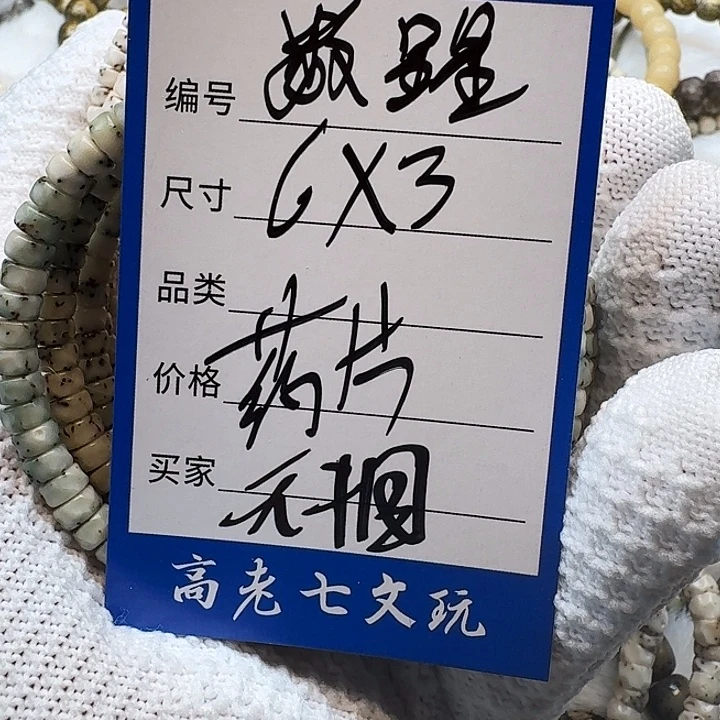 编号
尺寸 6X3
品类
价格 药片
买家
高老七文玩